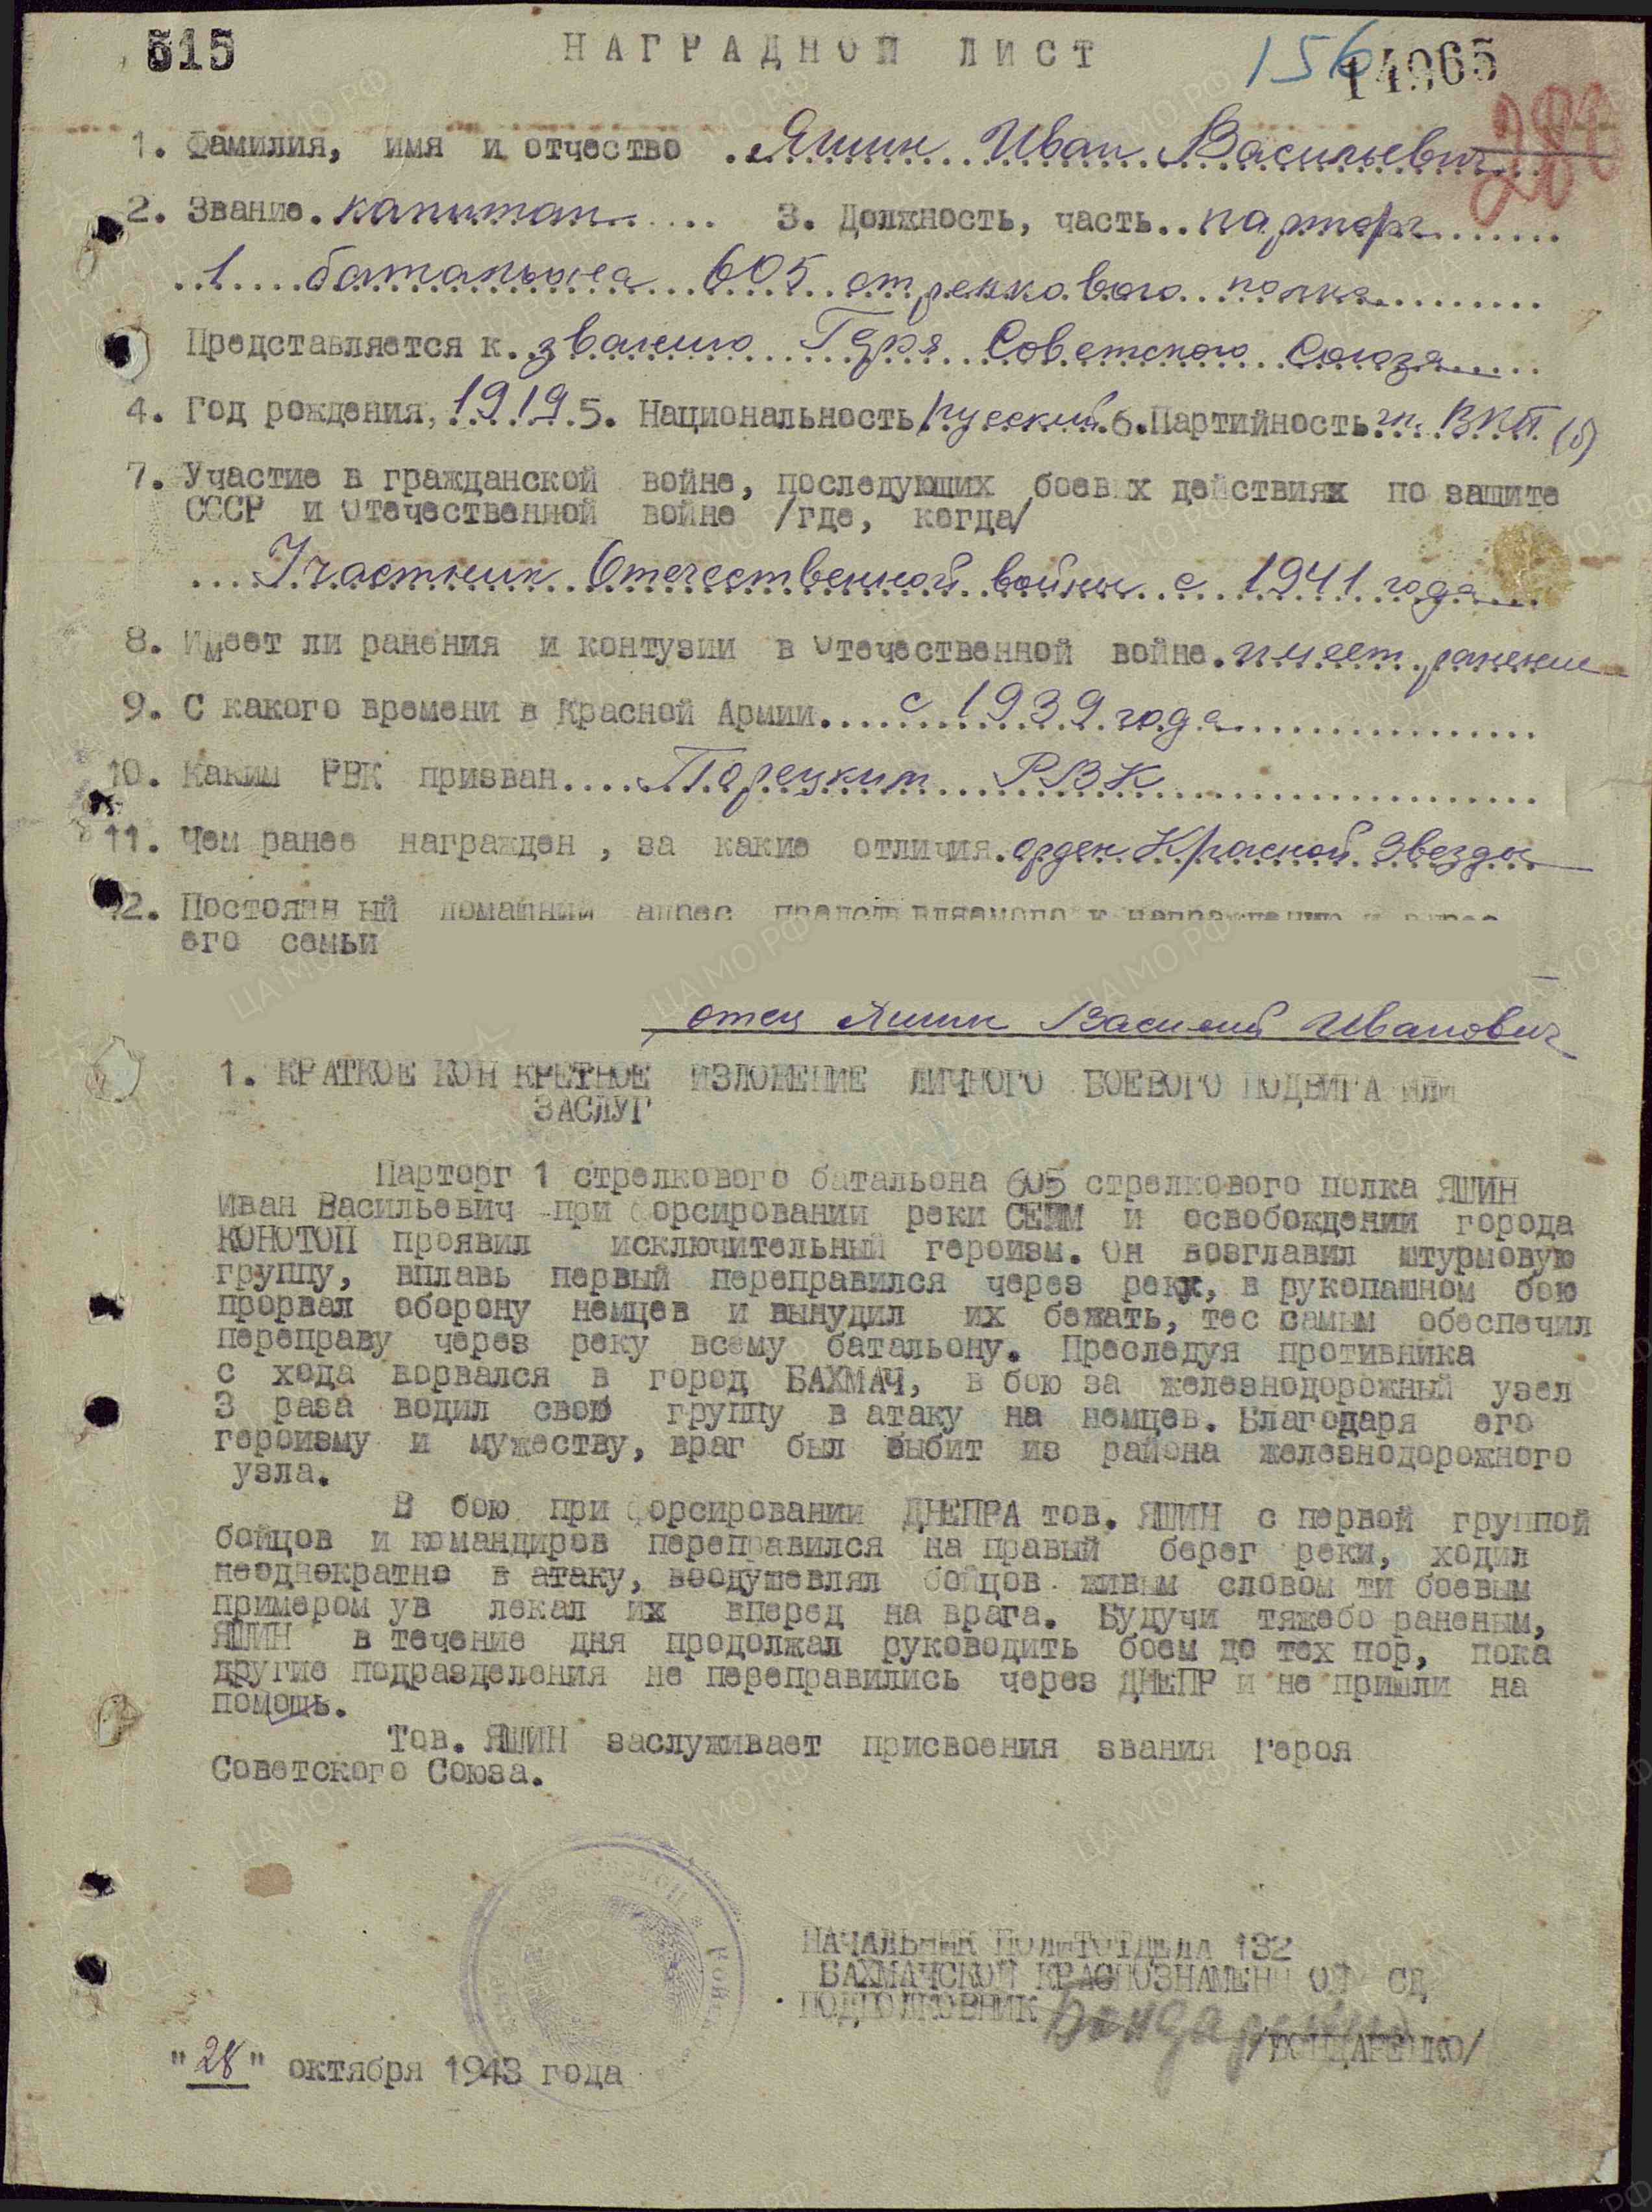 515
НАГРАДНОЙ ЛИСТ
156
14965
288
1. Фамилия, имя и отчество Яшин Иван Васильевич
2. Звание. капитан 3. Должность, часть.. парторг
1 батальона 605 стрелкового полка
Представляется к. званию Героя Советского Союза
4. Год рождения, 1919 5. Национальность русский 6. Партийность чл. ВКП (б)
7. Участие в гражданской войне, последующих боевых действиях по защите
СССР и Отечественной войне /где, когда/
Участник Отечественной войны с 1941 года
8. Имеет ли ранения и контузии в Отечественной войне. имеет ранение
9. С какого времени в Красной Армии.... с 1939 года
10. Каким РВК призван.... Порецким РВК
11. Чем ранее награжден , за какие отличия. орден Красной Звезды
12. Постоянный домашний адрес представляемого к награждению и адрес
его семьи
отец Яшин Василий Иванович
1. КРАТКОЕ КОНКРЕТНОЕ ИЗЛОЖЕНИЕ ЛИЧНОГО БОЕВОГО ПОДВИГА ИЛИ
ЗАСЛУГ
Парторг 1 стрелкового батальона 605 стрелкового полка ЯШИН
Иван Васильевич при форсировании реки СЕЙМ и освобождении города
КОНОТОП проявил исключительный героизм. Он возглавил штурмовую
группу, вплавь первый переправился через реку, в рукопашном бою
прорвал оборону немцев и вынудил их бежать, тес самым обеспечил
переправу через реку всему батальону. Преследуя противника
с хода ворвался в город БАХМАЧ, в бою за железнодорожный узел
3 раза водил свою группу в атаку на немцев. Благодаря его
героизму и мужеству, враг был выбит из района железнодорожного
узла.
В бою при форсировании ДНЕПРА тов. ЯШИН с первой группой
бойцов и командиров переправился на правый берег реки, ходил
неоднократно в атаку, воодушевлял бойцов живым словом ти боевым
примером ув лекал их вперед на врага. Будучи тяжебо раненым,
ЯШИН в течение дня продолжал руководить боем до тех пор, пока
другие подразделения не переправились через ДНЕПР и не пришли на
помощь.
Тов. ЯШИН заслуживает присвоения звания Героя
Советского Союза.
НАЧАЛЬНИК ПОЛИТОТДЕЛА 132
БАХМАЧСКОЙ КРАСНОЗНАМЕННОЙ СД
ПОДПОЛКОВНИК Бондаренко
/БОНДАРЕНКО/
"28" октября 1943 года